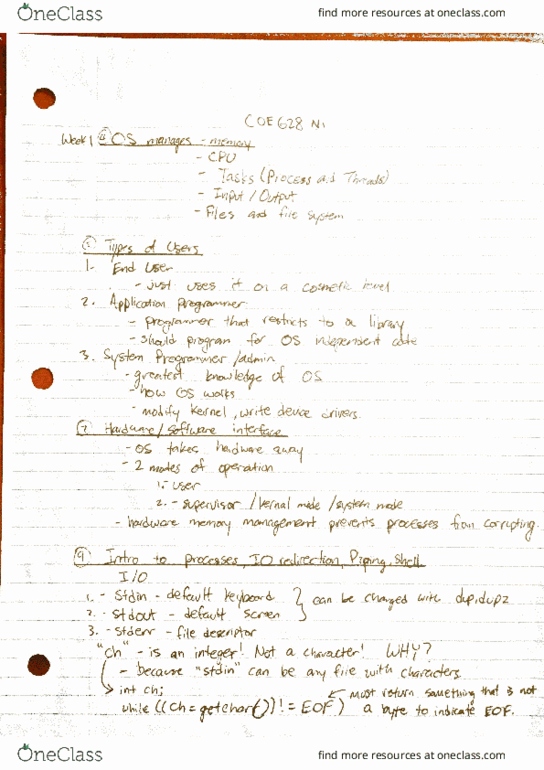 OneClass find more resources at oneclass.com
COE628 N1
Week 1 OS manages - memory
- CPU
- Tasks (Process and Threads)
- Input / Output
- Files and file system
Types of Users
1. End User
- just uses it on a cosmetic level
2. Application Programmer
- programmer that restricts to a library
- should program for OS independent code
3. System Programmer /admin
- greatest knowledge of OS
- how OS works
- modify kernel, write device drivers.
Hardware/Software interface
- OS takes hardware away
- 2 modes of operation
1. user
2. - supervisor / kernal mode / system mode
- hardware memory management prevents processes from corrupting.
Intro to processes, IO redirection, Piping, Shell
I/O
1. - Stdin - default keyboard } can be changed with dup, dup2
2. - Stdout - default screen
3. - stderr - file descriptor
"ch" - is an integer! Not a character! WHY?
- because "stdin" can be any file with characters.
int ch;
while ((ch = getchar()) != EOF) must return something that is not
a byte to indicate EOF.
OneClass find more resources at oneclass.com